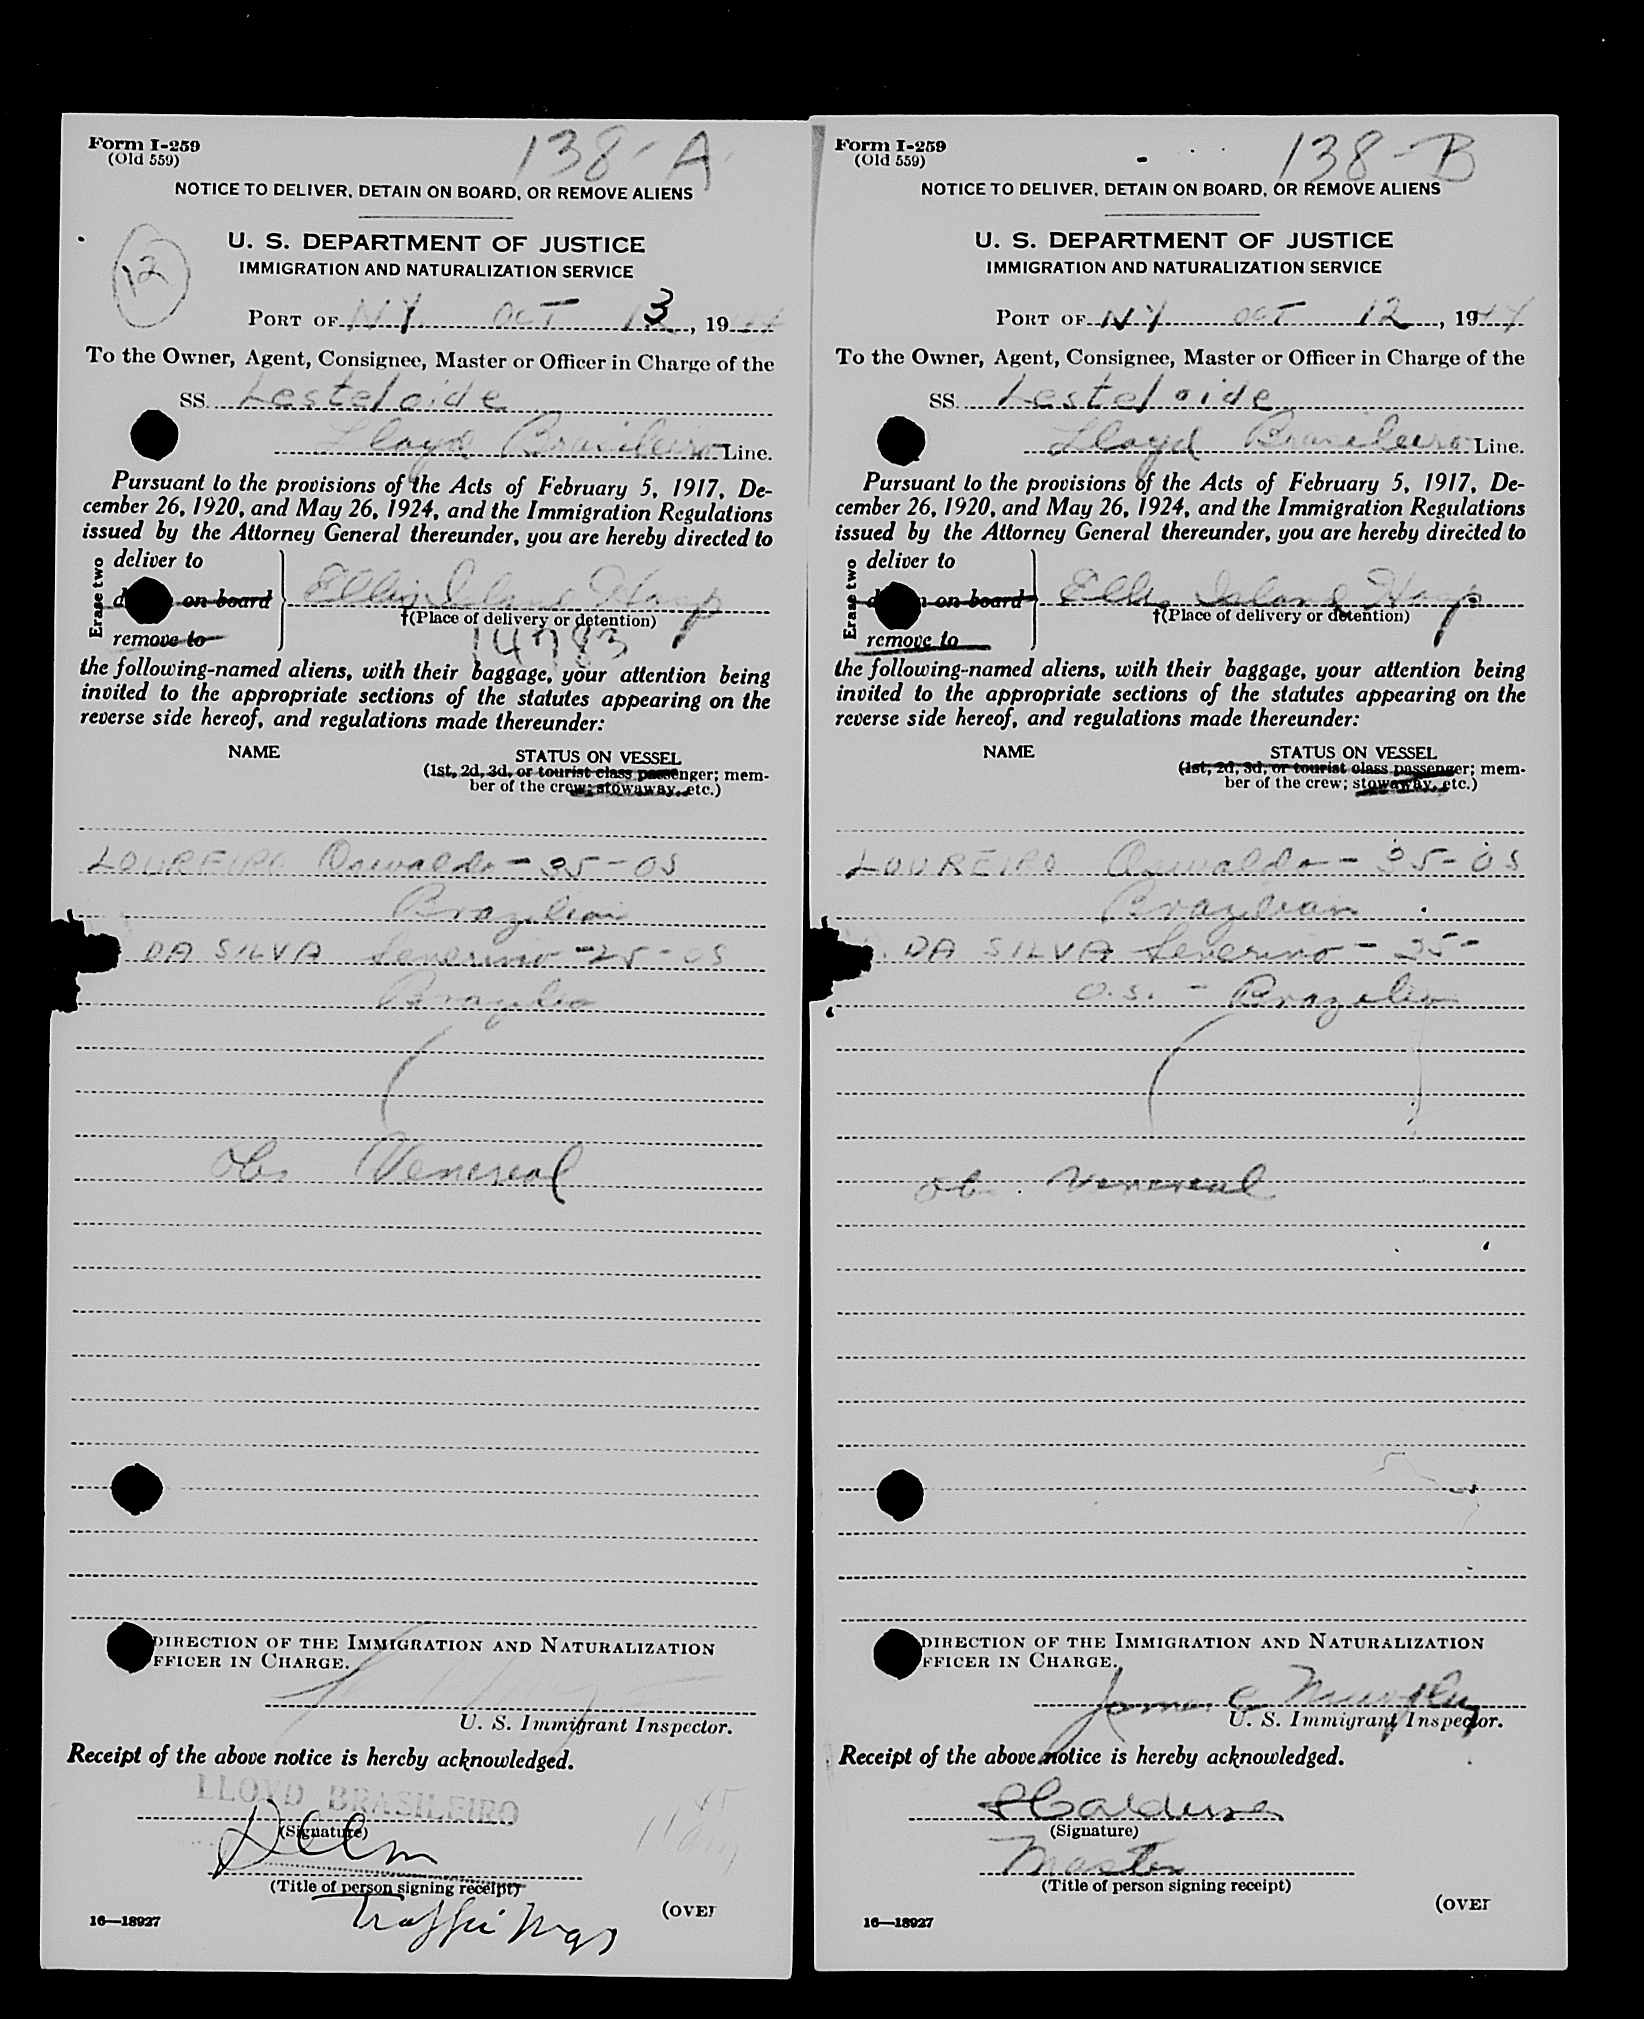 138-A
Form I-259
(Old 559)
NOTICE TO DELIVER, DETAIN ON BOARD, OR REMOVE ALIENS
U. S. DEPARTMENT OF JUSTICE
IMMIGRATION AND NATURALIZATION SERVICE
12
PORT OF NY OCT 3, 1944
To the Owner, Agent, Consignee, Master or Officer in Charge of the
SS. Lesteloide
Lloyd Brasileiro Line.
Pursuant to the provisions of the Acts of February 5, 1917, De-
cember 26, 1920, and May 26, 1924, and the Immigration Regulations
issued by the Attorney General thereunder, you are hereby directed to
Erase two
deliver to
on board Ellis Island Hosp
†(Place of delivery or detention)
remove to 14783
the following-named aliens, with their baggage, your attention being
invited to the appropriate sections of the statutes appearing on the
reverse side hereof, and regulations made thereunder:
NAME STATUS ON VESSEL
(1st, 2d, 3d, or tourist class passenger; mem-
ber of the crew; stowaway, etc.)
LOUREIRO Oswaldo - 35 - OS
Brazilian
DA SILVA Severino - 25 - OS
Brazilian
Venereal
DIRECTION OF THE IMMIGRATION AND NATURALIZATION
FFICER IN CHARGE.
U. S. Immigrant Inspector.
Receipt of the above notice is hereby acknowledged.
LLOYD BRASILEIRO
(Signature)
(Title of person signing receipt)
Traffic Mgr
(OVER
16—18927
138-B
Form I-259
(Old 559)
NOTICE TO DELIVER, DETAIN ON BOARD, OR REMOVE ALIENS
U. S. DEPARTMENT OF JUSTICE
IMMIGRATION AND NATURALIZATION SERVICE
PORT OF NY OCT 12, 1944
To the Owner, Agent, Consignee, Master or Officer in Charge of the
SS. Lesteloide
Lloyd Brasileiro Line.
Pursuant to the provisions of the Acts of February 5, 1917, De-
cember 26, 1920, and May 26, 1924, and the Immigration Regulations
issued by the Attorney General thereunder, you are hereby directed to
Erase two
deliver to
on board Ellis Island Hosp
†(Place of delivery or detention)
remove to
the following-named aliens, with their baggage, your attention being
invited to the appropriate sections of the statutes appearing on the
reverse side hereof, and regulations made thereunder:
NAME STATUS ON VESSEL
(1st, 2d, 3d, or tourist class passenger; mem-
ber of the crew; stowaway, etc.)
LOUREIRO Oswaldo - 35 - OS
Brazilian
DA SILVA Severino - 25 -
O.S. - Brazilian
Venereal
DIRECTION OF THE IMMIGRATION AND NATURALIZATION
FFICER IN CHARGE.
James C Murphy
U. S. Immigrant Inspector.
Receipt of the above notice is hereby acknowledged.
(Signature)
Master
(Title of person signing receipt)
(OVER
16—18927